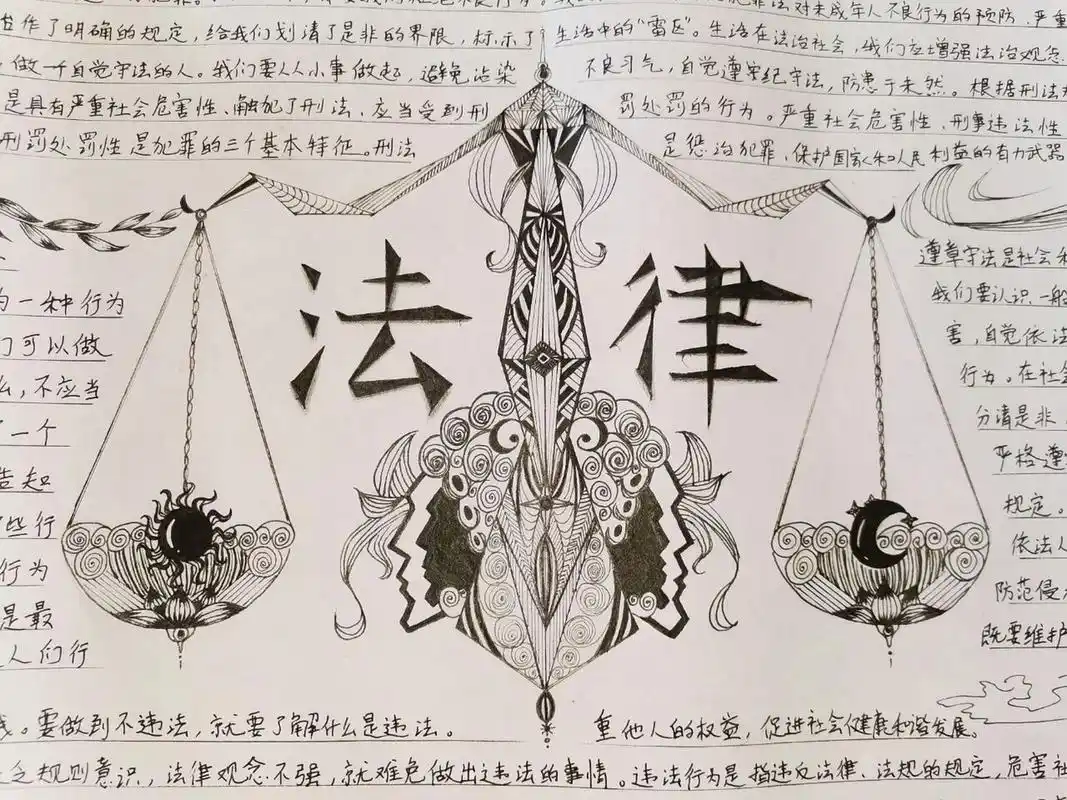 作了明确的规定，给我们划清了是非的界限，标示了
做一个自觉守法的人。我们要从小事做起，避免沾染
是具有严重社会危害性、触犯了刑法、应当受到刑
刑罚处罚性是犯罪的三个基本特征。刑法
法对未成年人不良行为的预防、严重
生活中的“雷区”。生活在法治社会，我们应增强法治观念
不良习气，自觉遵守纪守法，防患于未然。根据刑法
罚处罚的行为。严重社会危害性、刑事违法性
是惩治犯罪、保护国家和人民利益的有力武器
法律
为一种行为
们可以做
么，不应当
了一个
告知
些行
行为
是最
人们行
遵章守法是社会
我们要认识一般
害，自觉依法
行为。在社会
分清是非
严格遵
规定。
依法
防范侵
既要维护
。要做到不违法，就要了解什么是违法。
重他人的权益，促进社会健康和谐发展。
规则意识，法律观念不强，就难免做出违法的事情。违法行为是指违反法律、法规的规定，危害社